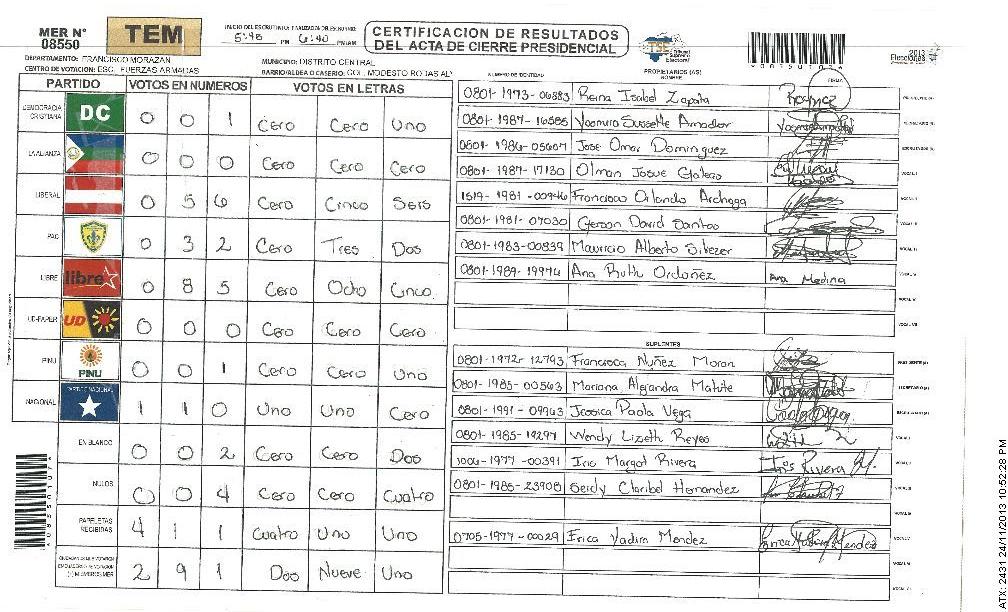 MER N° 08550
TEM
INICIO DEL ESCRUTINIO: FINALIZACION DEL ESCRUTINIO:
5:40 PM 6:40 PM/AM
CERTIFICACION DE RESULTADOS
DEL ACTA DE CIERRE PRESIDENCIAL
TSE Tribunal Supremo Electoral
2013
Elecciones
DEPARTAMENTO: FRANCISCO MORAZAN
MUNICIPIO: DISTRITO CENTRAL
CENTRO DE VOTACION: ESC. FUERZAS ARMADAS
BARRIO/ALDEA O CASERIO: COL. MODESTO RODAS AL
NUMERO DE IDENTIDAD
PROPIETARIOS (AS)
NOMBRE
FIRMA
PARTIDO VOTOS EN NUMEROS VOTOS EN LETRAS
DEMOCRACIA CRISTIANA DC 0 0 1 Cero Cero Uno
LA ALIANZA 0 0 0 Cero Cero Cero
LIBERAL 0 5 6 Cero Cinco Seis
PAC 0 3 2 Cero Tres Dos
LIBRE libre 0 8 5 Cero Ocho Cinco
UD-FAPER UD 0 0 0 Cero Cero Cero
PINU PINU 0 0 1 Cero Cero Uno
NACIONAL PARTIDO NACIONAL 1 1 0 Uno Uno Cero
EN BLANCO 0 0 2 Cero Cero Dos
NULOS 0 0 4 Cero Cero Cuatro
PAPELETAS RECIBIDAS 4 1 1 Cuatro Uno Uno
2 9 1 Dos Nueve Uno
0801-1973-06883 Reina Isabel Zapata
0801-1987-16585 Yosmira Sussette Amador
0801-1986-05607 Jose Omar Dominguez
0801-1987-17130 Olman Josue Galeas
1519-1981-00946 Francisco Orlando Archaga
0801-1981-07030 Gerson David Santos
0801-1983-00839 Mauricio Alberto
0801-1989-19974 Ana Ruth Ordoñez Ana Medina
SUPLENTES
0801-1972-12793 Francisca Nuñez Moran
0801-1985-00563 Mariana Alejandra Matute
0801-1991-09963 Jessica Paola Vega
0801-1985-19297 Wendy Lizeth Reyes
1006-1977-00391 Iris Margot Rivera Iris Rivera M.
0801-1985-23908 Claribel Hernandez
0705-1977-00029 Erica Yadira Mendez
ATX-2431 24/11/2013 10:52:28 PM